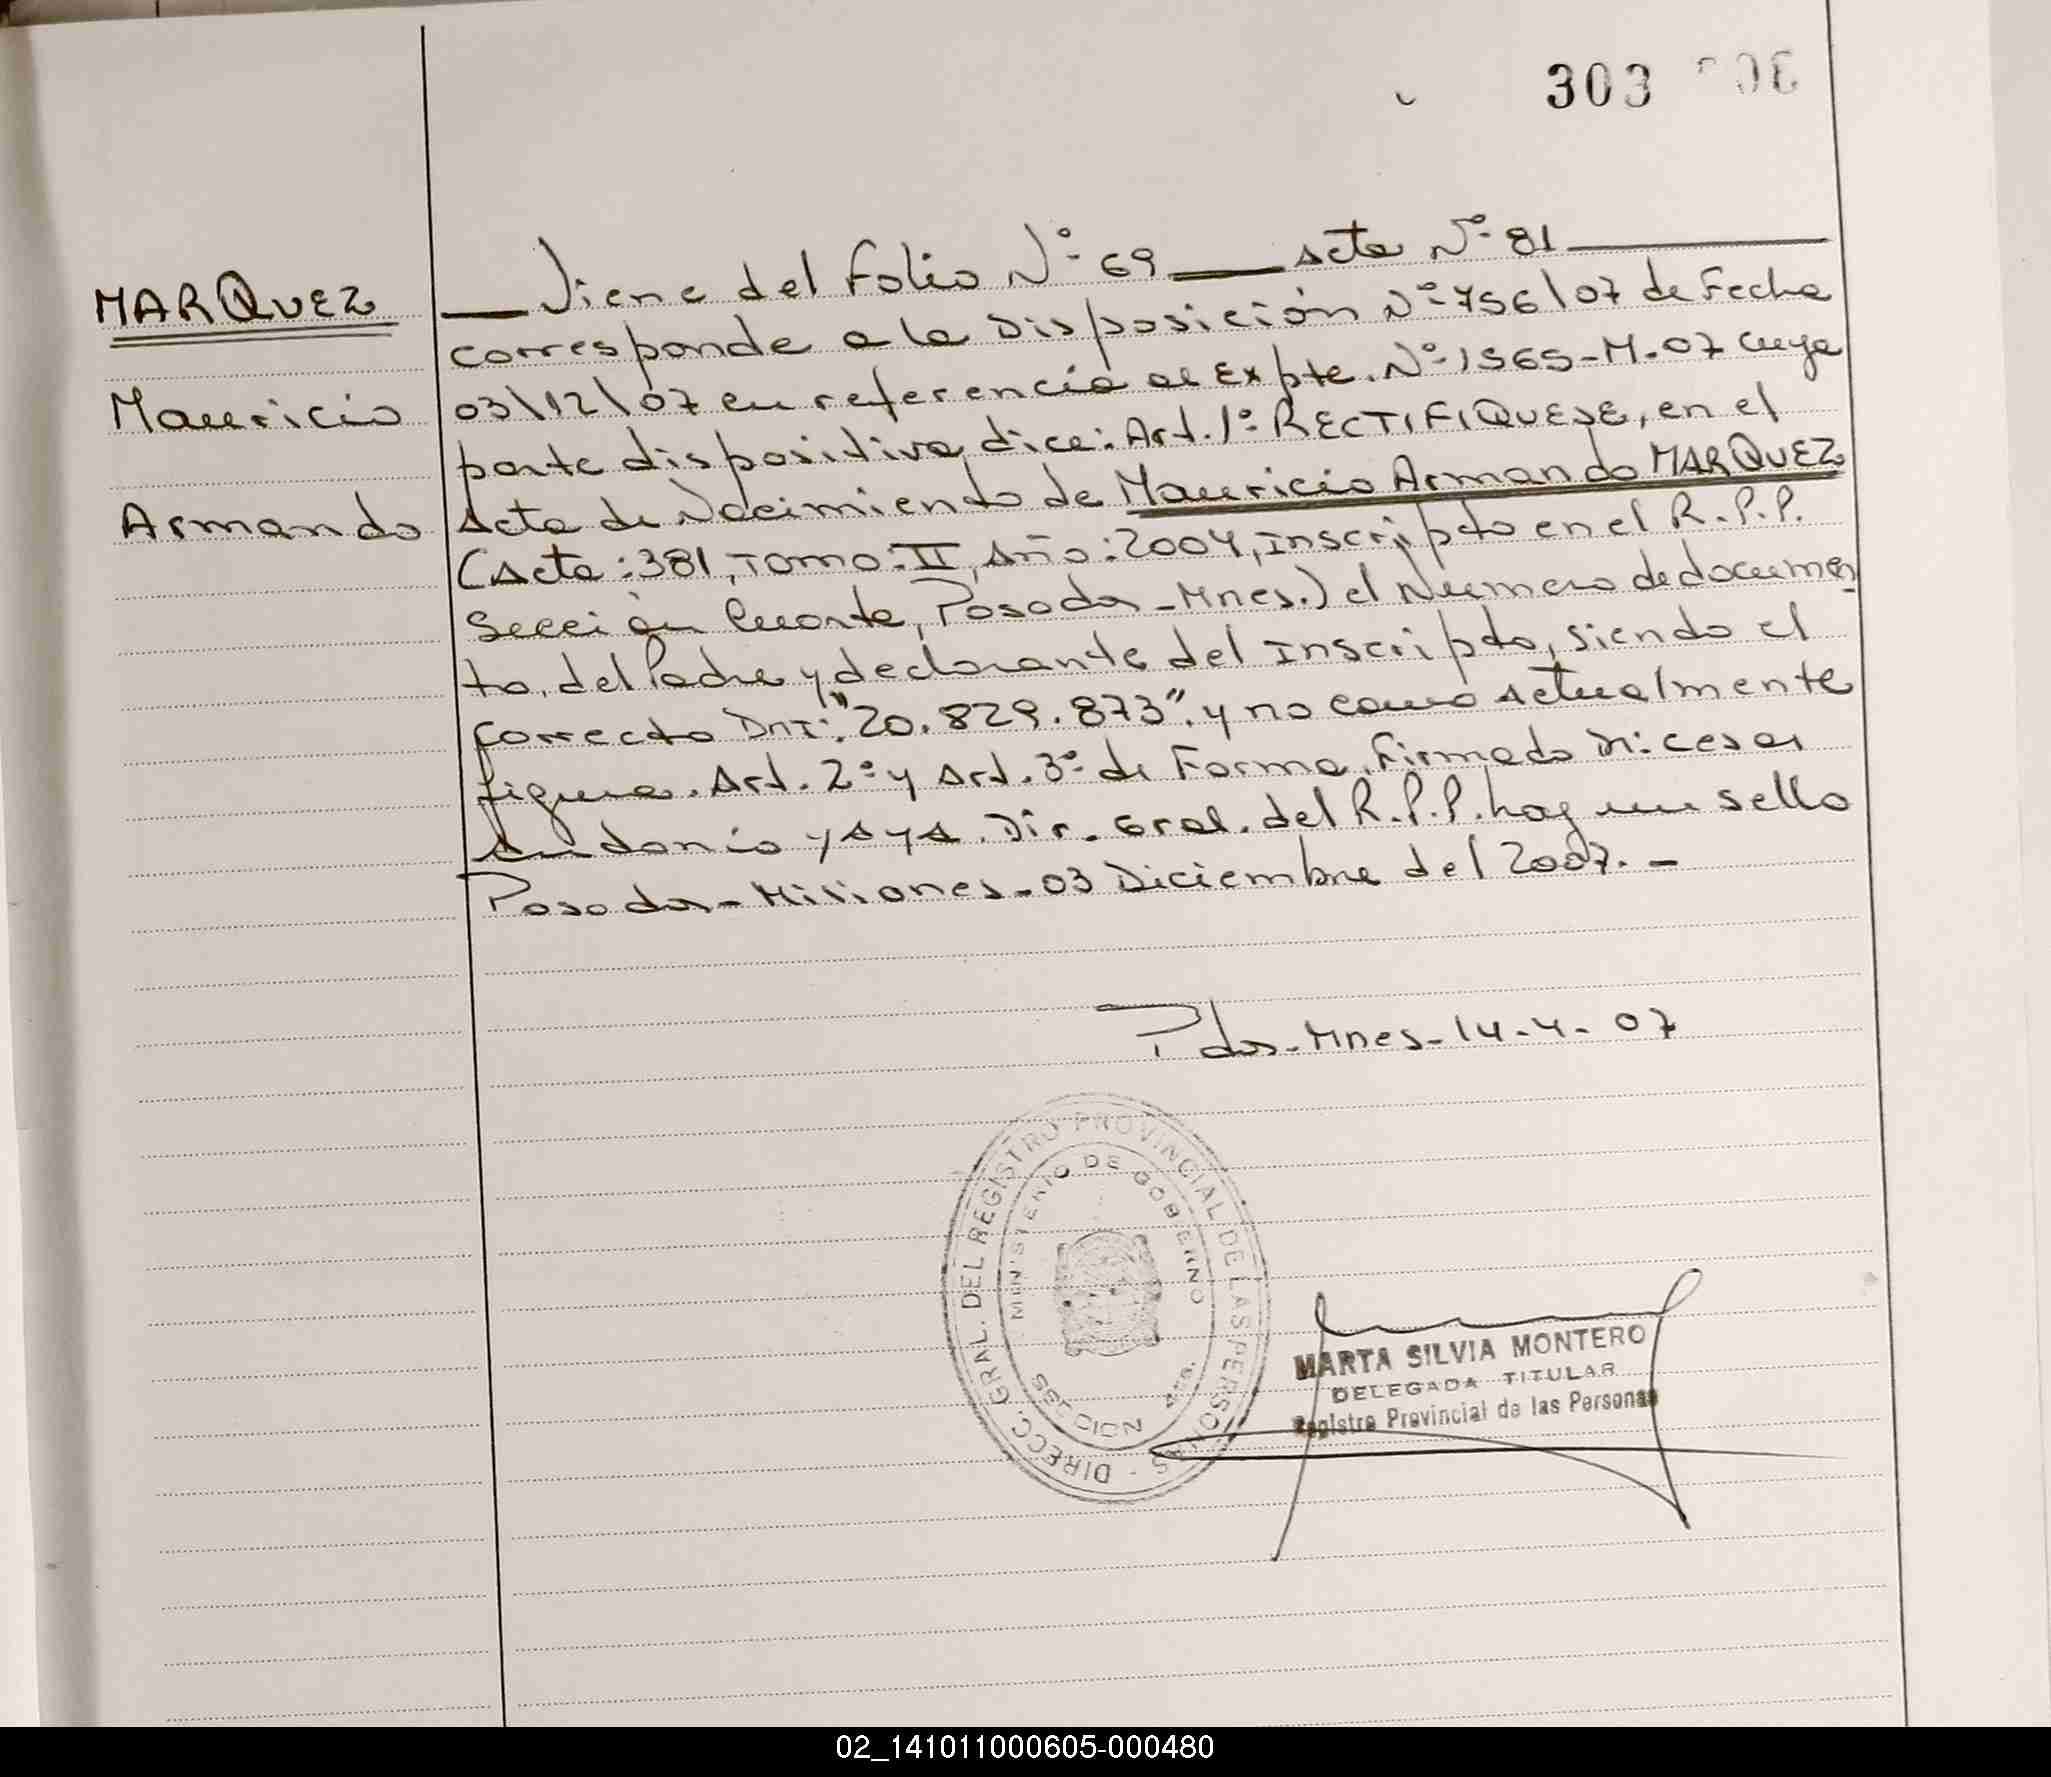 303
MARQUEZ
Mauricio
Armando
Viene del Folio Nº 69 Acta Nº 81
corresponde a la Disposición Nº 756/07 de Fecha
03/12/07 en referencia al Expte. Nº 1565-M-07 cuya
parte dispositiva dice: Art. 1º RECTIFIQUESE, en el
Acta de Nacimiento de Mauricio Armando MARQUEZ
(Acta: 381, Tomo: II, Año: 2004, Inscripto en el R.P.P.
Sección Cuarta, Posadas - Mnes.) el Número de documen-
to, del Padre y declarante del Inscripto, siendo el
correcto DNI: "20.829.873". y no como actualmente
figura. Art. 2º y Art. 3º de Forma. Firmado Dr: Cesar
Antonio Dir. Gral. del R.P.P. hay un sello
Posadas - Misiones - 03 Diciembre del 2007.-
Pdas - Mnes - 14-4-07
DIRECC. GRAL. DEL REGISTRO PROVINCIAL DE LAS PERSONAS -
MINISTERIO DE GOBIERNO
SECCION 4ta.
MARTA SILVIA MONTERO
DELEGADA TITULAR
Registro Provincial de las Personas
02_141011000605-000480